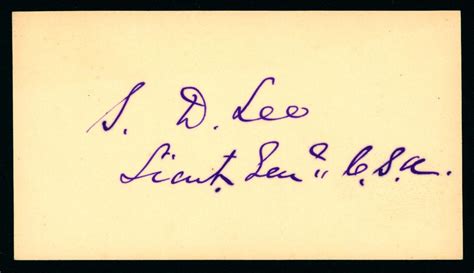 S. D. Lee
Lieut. Genl. C.S.A.